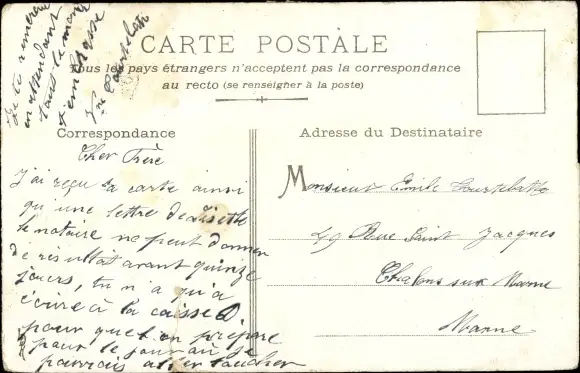 CARTE POSTALE
Tous les pays étrangers n'acceptent pas la correspondance
au recto (se renseigner à la poste)
Correspondance
Cher Frère
J'ai reçu ta carte ainsi
qu'une lettre de Lisette
le notaire ne peut donner
de résultat avant quinze
jours, tu n'a qu'à
écrire à la caisse
pour que l'on prépare
pour le jour où je
pourrais aller toucher
Je te remercie
en attendant
tout le monde
t'embrasse
Adresse du Destinataire
Monsieur Emile
49 Rue Saint Jacques
Chalons sur Marne
Marne